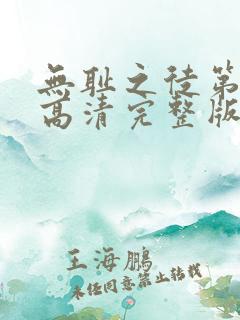 無耻之徒第
高清完整版
王海鹏
未经同意禁止转载